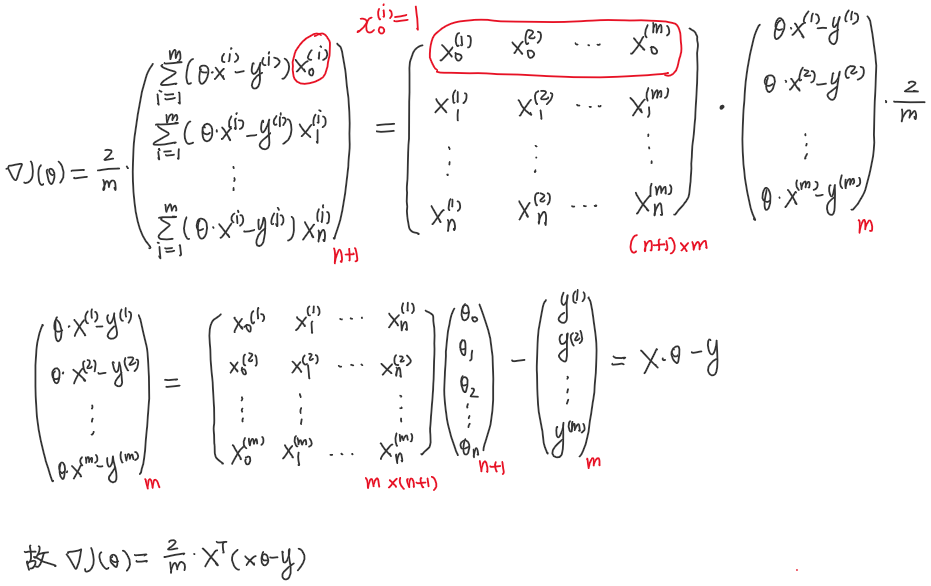 x_0^{(i)}=1
∇J(θ) = \frac{2}{m} · \begin{pmatrix} \sum_{i=1}^{m}(θ·x^{(i)}-y^{(i)})x_0^{(i)} \\ \sum_{i=1}^{m}(θ·x^{(i)}-y^{(i)})x_1^{(i)} \\ ⋮ \\ \sum_{i=1}^{m}(θ·x^{(i)}-y^{(i)})x_n^{(i)} \end{pmatrix}_{n+1} = \begin{pmatrix} x_0^{(1)} & x_0^{(2)} & ⋯ & x_0^{(m)} \\ x_1^{(1)} & x_1^{(2)} & ⋯ & x_1^{(m)} \\ ⋮ & ⋮ & & ⋮ \\ x_n^{(1)} & x_n^{(2)} & ⋯ & x_n^{(m)} \end{pmatrix}_{(n+1)×m} · \begin{pmatrix} θ·x^{(1)}-y^{(1)} \\ θ·x^{(2)}-y^{(2)} \\ ⋮ \\ θ·x^{(m)}-y^{(m)} \end{pmatrix}_{m} · \frac{2}{m}
\begin{pmatrix} θ·x^{(1)}-y^{(1)} \\ θ·x^{(2)}-y^{(2)} \\ ⋮ \\ θ·x^{(m)}-y^{(m)} \end{pmatrix}_{m} = \begin{bmatrix} x_0^{(1)} & x_1^{(1)} & ⋯ & x_n^{(1)} \\ x_0^{(2)} & x_1^{(2)} & ⋯ & x_n^{(2)} \\ ⋮ & ⋮ & & ⋮ \\ x_0^{(m)} & x_1^{(m)} & ⋯ & x_n^{(m)} \end{bmatrix}_{m×(n+1)} \begin{pmatrix} θ_0 \\ θ_1 \\ θ_2 \\ ⋮ \\ θ_n \end{pmatrix}_{n+1} - \begin{pmatrix} y^{(1)} \\ y^{(2)} \\ ⋮ \\ y^{(m)} \end{pmatrix}_{m} = X·θ-y
故 ∇J(θ) = \frac{2}{m} · X^T(xθ-y)